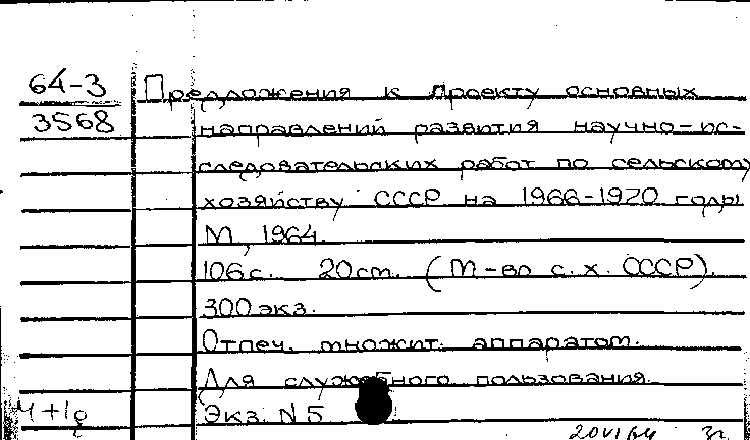 64-3
3568
Предложения к проекту основных
направлений развития научно-ис-
следовательских работ по сельскому
хозяйству СССР на 1966-1970 годы
М, 1964.
106 с. 20 см. (М-во с.х. СССР).
300 экз.
Отпеч. множит. аппаратом.
Для служебного пользования.
Экз. N 5